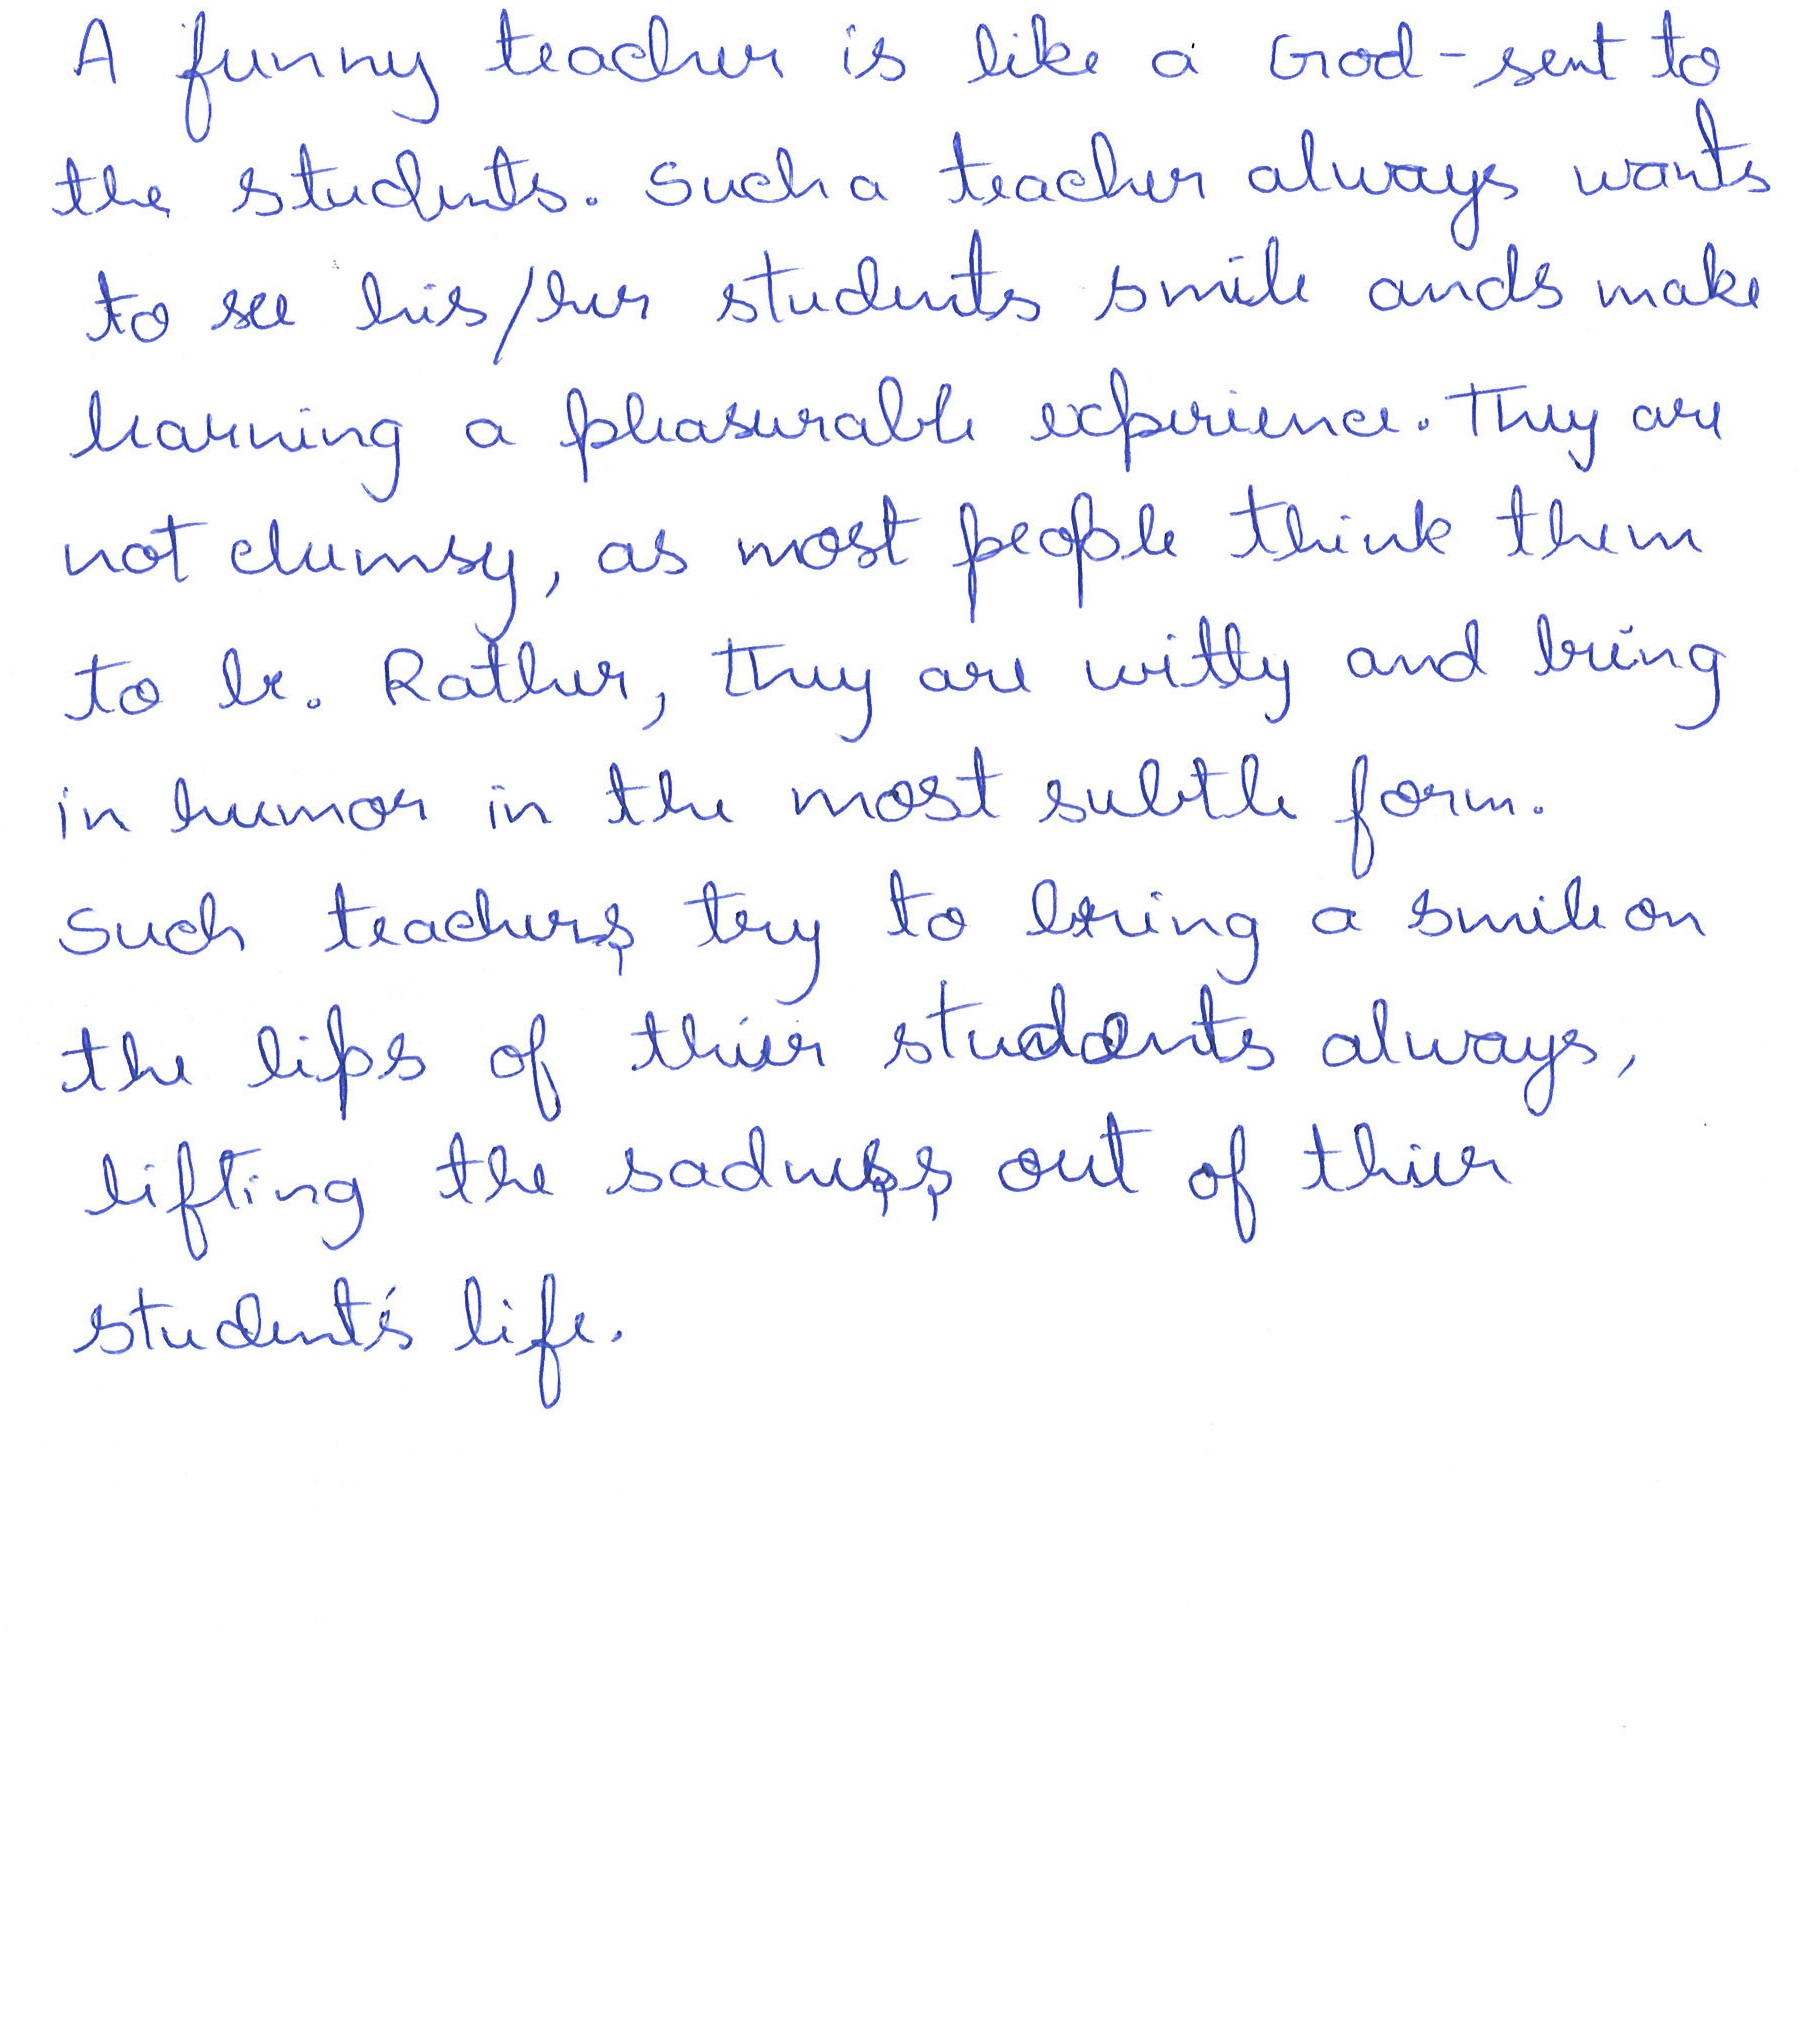 A funny teacher is like a God-sent to
the students. Such a teacher always wants
to see his/her students smile ands make
learning a pleasurable experience. They are
not clumsy, as most people think them
to be. Rather, they are witty and bring
in humor in the most subtle form.
Such teachers try to bring a smile on
the lips of thier students always,
lifting the sadness out of thier
student's life.